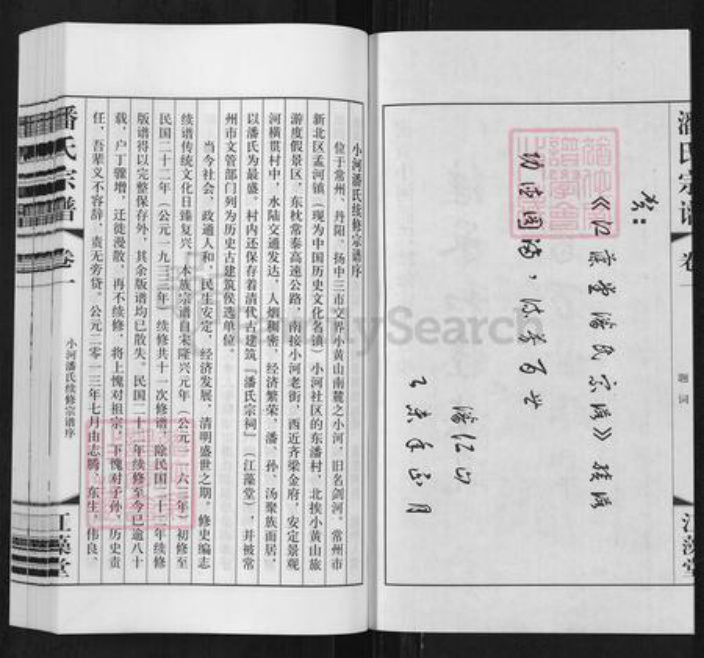 潘氏宗谱
卷一
题词
江藻堂
贺：
《江藻堂潘氏宗谱》续谱
功德圆满，流芳百世
潘仁山
月
小河潘氏续修宗谱序
位于常州、丹阳、扬中三市交界小黄山南麓之小河，旧名剑河。常州市
新北区孟河镇（现为中国历史文化名镇）小河社区的东潘村，北挨小黄山旅
游度假景区，东枕常泰高速公路，南接小河老街，西近齐梁金府，安定景观
河横贯村中，水陆交通发达，人烟稠密，经济繁荣，潘、孙、汤聚族而居，
以潘氏为最盛。村内还保存着清代古建筑『潘氏宗祠』（江藻堂），并被常
州市文管部门列为历史古建筑候选单位。
当今社会，政通人和，民生安定，经济发展，清明盛世之期。修史编志
续谱传统文化日臻复兴。本族宗谱自宋隆兴元年（公元一一六三年）初修至
民国二十二年（公元一九三三年）续修共十一次修谱，除民国二十二年续修
版谱得以完整保存外，其余版谱均已散失。民国二十二年续修至今已逾八十
载，户丁骤增，迁徙漫散，再不续修，将上愧对祖宗，下愧对子孙，历史责
任，吾辈义不容辞，责无旁贷。公元二零一三年七月由志鹏、东生、伟良、
潘氏宗谱
卷一
小河潘氏续修宗谱序
江藻堂
MySearch